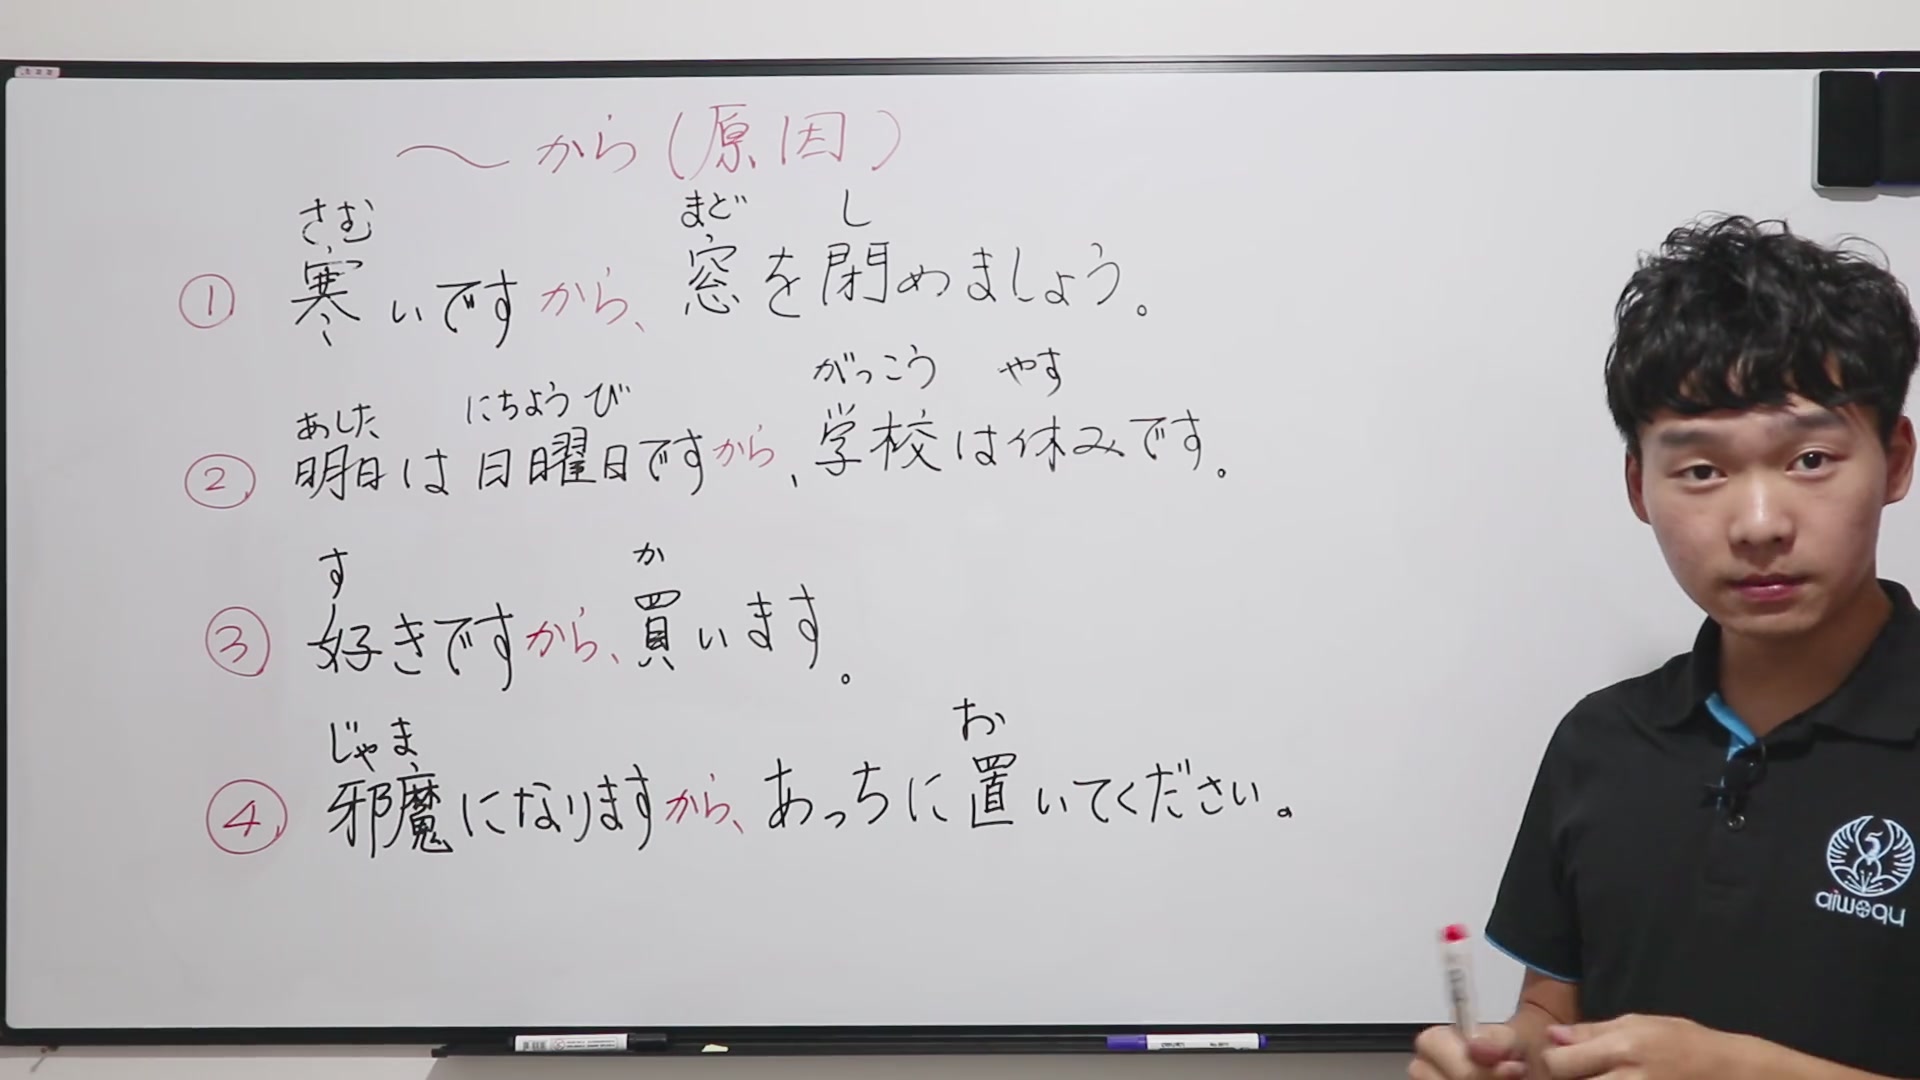 ～から(原因)
さむ まど し
① 寒いですから、窓を閉めましょう。
あした にちようび がっこう やす
② 明日は日曜日ですから、学校は休みです。
す か
③ 好きですから、買います。
じゃま お
④ 邪魔になりますから、あっちに置いてください。
aiwoqu